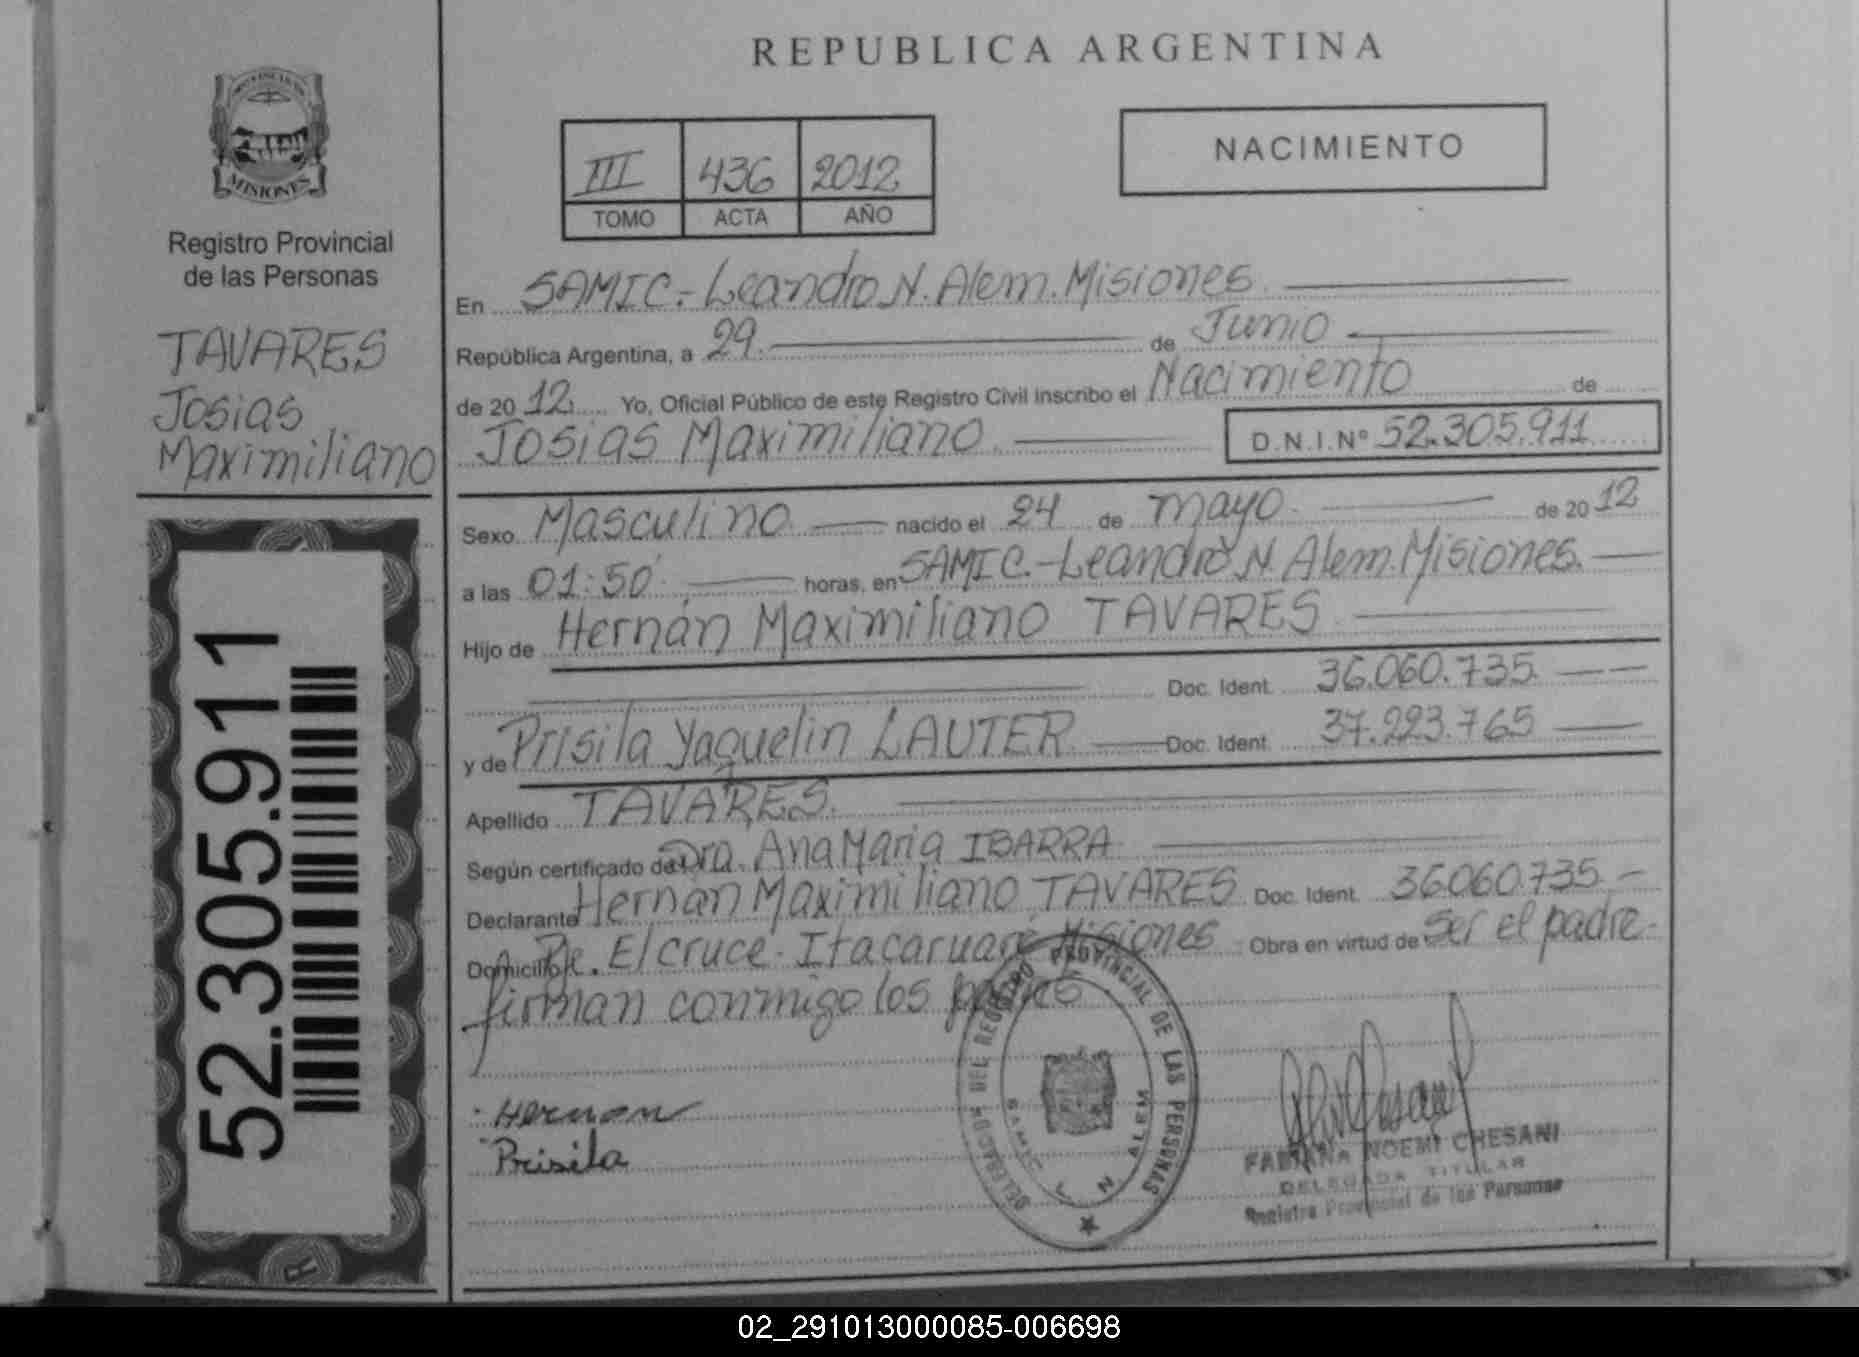 REPUBLICA ARGENTINA
NACIMIENTO
III 436 2012
TOMO ACTA AÑO
MISIONES
Registro Provincial
de las Personas
TAVARES
Josias
Maximiliano
52.305.911
En SAMIC.-Leandro N. Alem. Misiones.
República Argentina, a 29. de Junio
de 20 12. Yo, Oficial Público de este Registro Civil Inscribo el Nacimiento de
Josias Maximiliano. D.N.I.Nº 52.305.911
Sexo Masculino nacido el 24 de mayo. de 20 12
a las 01:50. horas, en SAMIC.-Leandro N. Alem. Misiones.
Hijo de Hernán Maximiliano TAVARES
Doc. Ident. 36.060.735.
y de Prisila Yaquelin LAUTER Doc. Ident. 37.223.765
Apellido TAVARES.
Según certificado de Dra. Ana Maria IBARRA
Declarante Hernán Maximiliano TAVARES Doc. Ident. 36060.735.
Domicilio El cruce. Itacaruaré Misiones Obra en virtud de ser el padre.
firman conmigo los padres
Hernan
Prisila
DELEGACION DEL REGISTRO PROVINCIAL DE LAS PERSONAS
SAMIC L N ALEM
FABIANA NOEMI CHESANI
DELEGADA TITULAR
Registro Provincial de las Personas
02_291013000085-006698